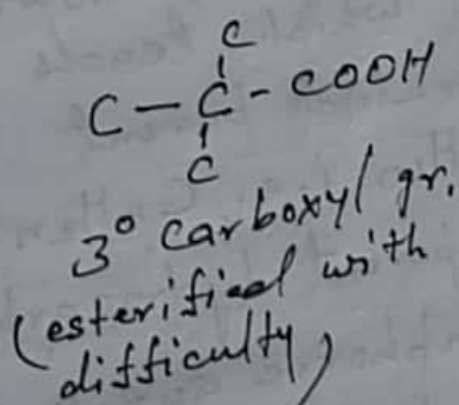 C
C - C - COOH
C
3° carboxyl gr.
(esterified with
difficulty)